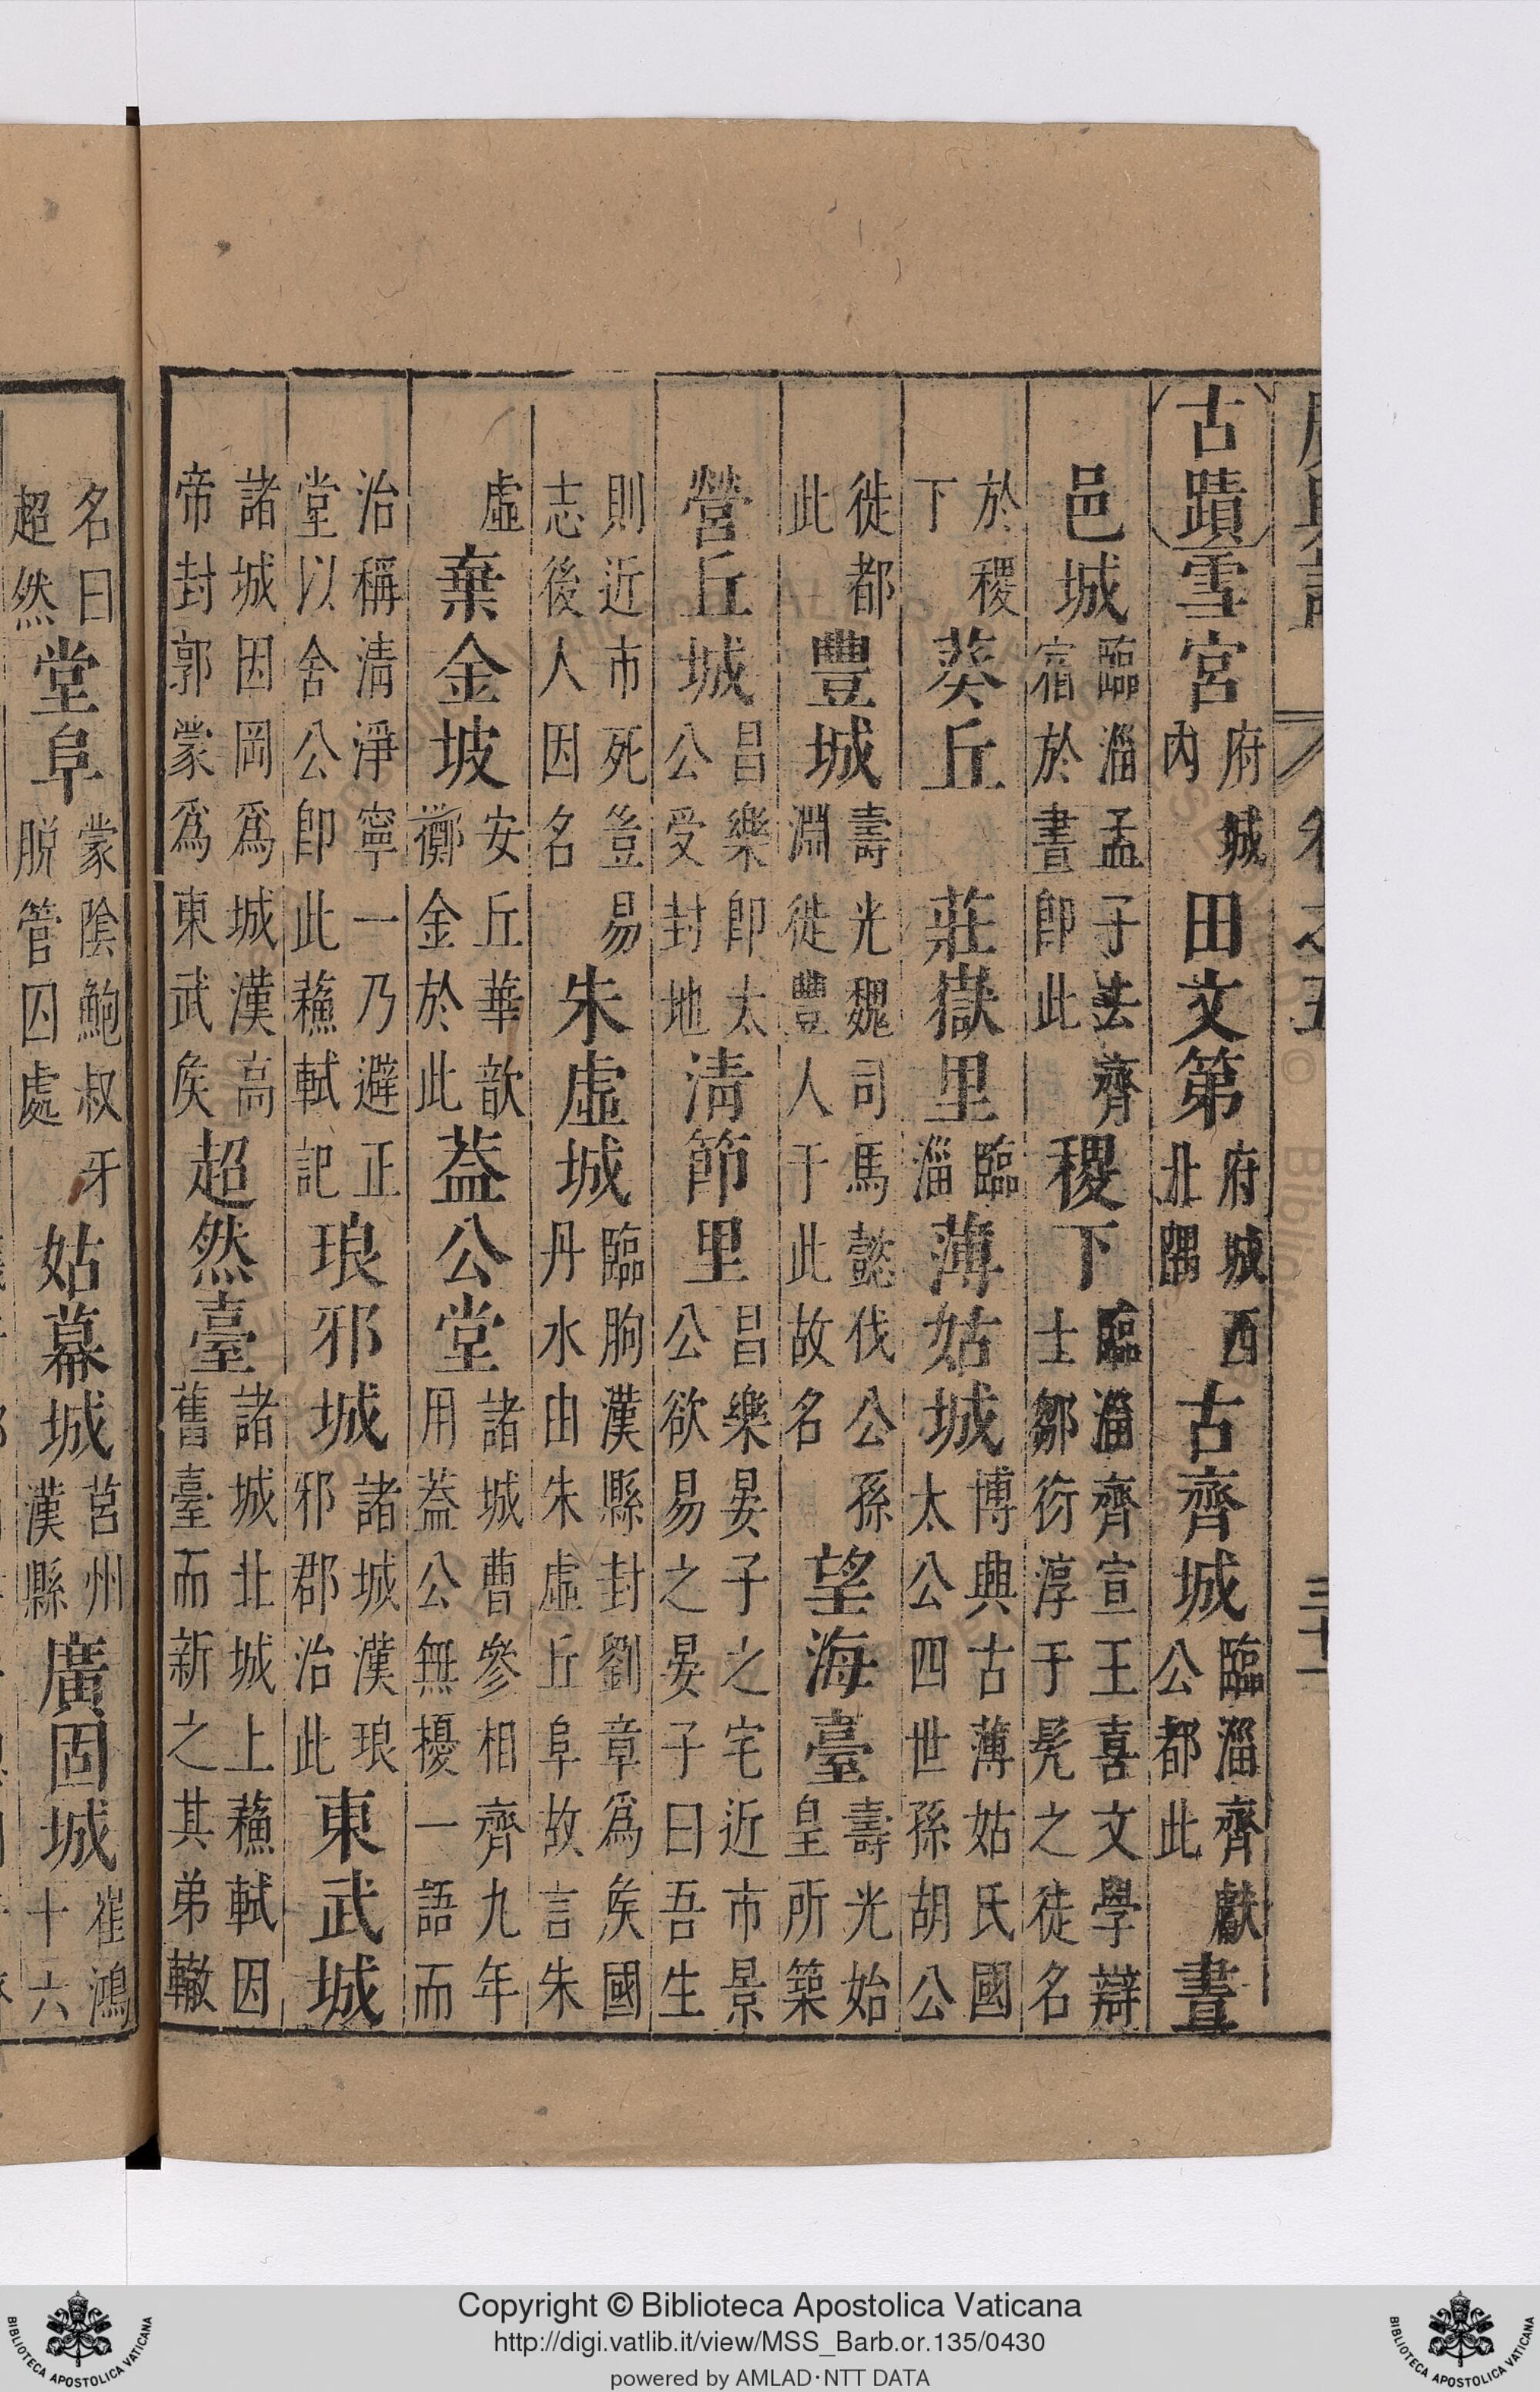 古蹟雪宮府城內田文第府城西北隅古齊城臨淄齊獻公都此晝
邑城臨淄孟子去齊宿於晝卽此稷下臨淄齊宣王喜文學辯士鄒衍淳于髡之徒名
於稷下葵丘莊嶽里臨淄薄姑城博興古薄姑氏國太公四世孫胡公
徙都此豐城壽光魏司馬懿伐公孫淵徙豐人于此故名望海臺壽光始皇所築
營丘城昌樂卽太公受封地清節里昌樂晏子之宅近市景公欲易之晏子曰吾生
則近市死豈易志後人因名朱虛城臨朐漢縣封劉章爲矦國丹水由朱虛丘阜故言朱
虛棄金坡安丘華歆擲金於此葢公堂諸城曹參相齊九年用葢公無擾一語而
治稱清淨寧一乃避正堂以舍公卽此蘓軾記琅邪城諸城漢琅邪郡治此東武城
諸城因岡爲城漢高帝封郭蒙爲東武矦超然臺諸城北城上蘓軾因舊臺而新之其弟轍
名曰超然堂阜蒙陰鮑叔牙脱管囚處姑幕城莒州漢縣廣固城崔鴻十六
Copyright © Biblioteca Apostolica Vaticana
http://digi.vatlib.it/view/MSS_Barb.or.135/0430
powered by AMLAD·NTT DATA
BIBLIOTECA APOSTOLICA VATICANA
BIBLIOTECA APOSTOLICA VATICANA